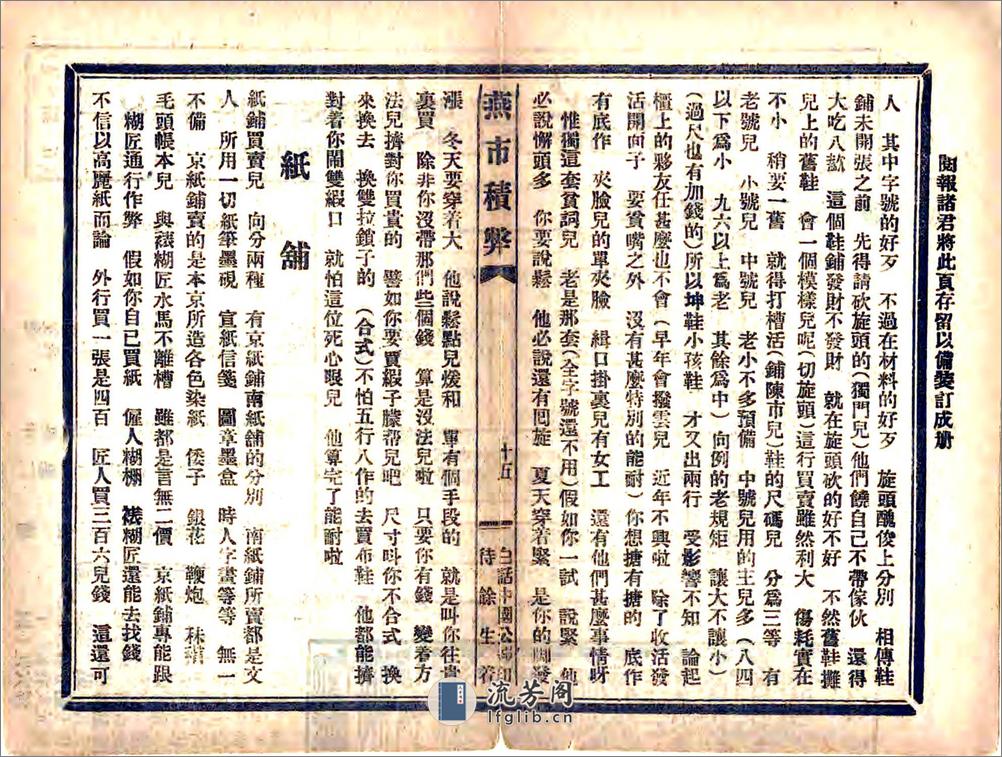 閱報諸君將此頁存留以備裝訂成册
人　其中字號的好歹　不過在材料的好歹　旋頭醜俊上分別　相傳鞋
鋪未開張之前　先得請砍旋頭的(獨門兒)他們饒自己不帶傢伙　還得
大吃八㰱　這個鞋鋪發財不發財　就在旋頭砍的好不好　不然舊鞋攤
兒上的舊鞋　會一個模樣兒呢(切旋頭)這行買賣雖然利大　傷耗實在
不小　稍要一舊　就得打槽活(鋪陳市兒)鞋的尺碼兒　分爲三等　有
老號兒　小號兒　中號兒　老小不多預備　中號兒用的主兒多(八四
以下爲小　九六以上爲老　其餘爲中)　向例的老規矩　讓大不讓小
(過尺也有加錢的)所以坤鞋小孩鞋　才又出兩行　受影響不知　論起
櫃上的夥友任甚麼也不會(早年會撥雲兒　近年不興啦　除了收活發
活開面子　要貧嘴之外　沒有甚麼特別的能耐)你想搪有搪的　底作
有底作　夾臉兒的單夾臉　緝口掛裏兒有女工　還有他們甚麼事情呀
　惟獨這套貧詞兒　老是那套(全字號還不用)假如你一試　說緊　他
必說懈頭多　你要說鬆　他必說還有囘旋　夏天穿着緊　是你的脚發
燕市積弊
十五
白話中國公報印
待餘生着
漲　冬天要穿着大　他說鬆點兒煖和　單有個手段的　就是叫你往貴
裏買　除非你沒帶那們些個錢　算是沒法兒啦　只要你有錢　變着方
法兒擠對你買貴的　譬如你要買緞子朦帮兒吧　尺寸叫你不合式　換
來換去　換雙拉鎖子的(合式)不怕五行八作的去買布鞋　他都能擠
對着你鬧雙緞口　就怕這位死心眼兒　他算完了能耐啦
紙　舖
紙鋪買賣兒　向分兩種　有京紙鋪南紙鋪的分別　南紙鋪所賣都是文
人　所用一切紙筆墨硯　宣紙信箋　圖章墨盒　時人字畫等等　無一
不備　京紙鋪賣的是本京所造各色染紙　倭子　銀花　鞭炮　秫稭
毛頭帳本兒　與裱糊匠水馬不離槽　雖都是言無二價　京紙鋪專能跟
　糊匠通行作弊　假如你自己買紙　僱人糊棚　裱糊匠還能去找錢
不信以高麗紙而論　外行買一張是四百　匠人買三百六兒錢　還還可
流芳阁
lfglib.cn